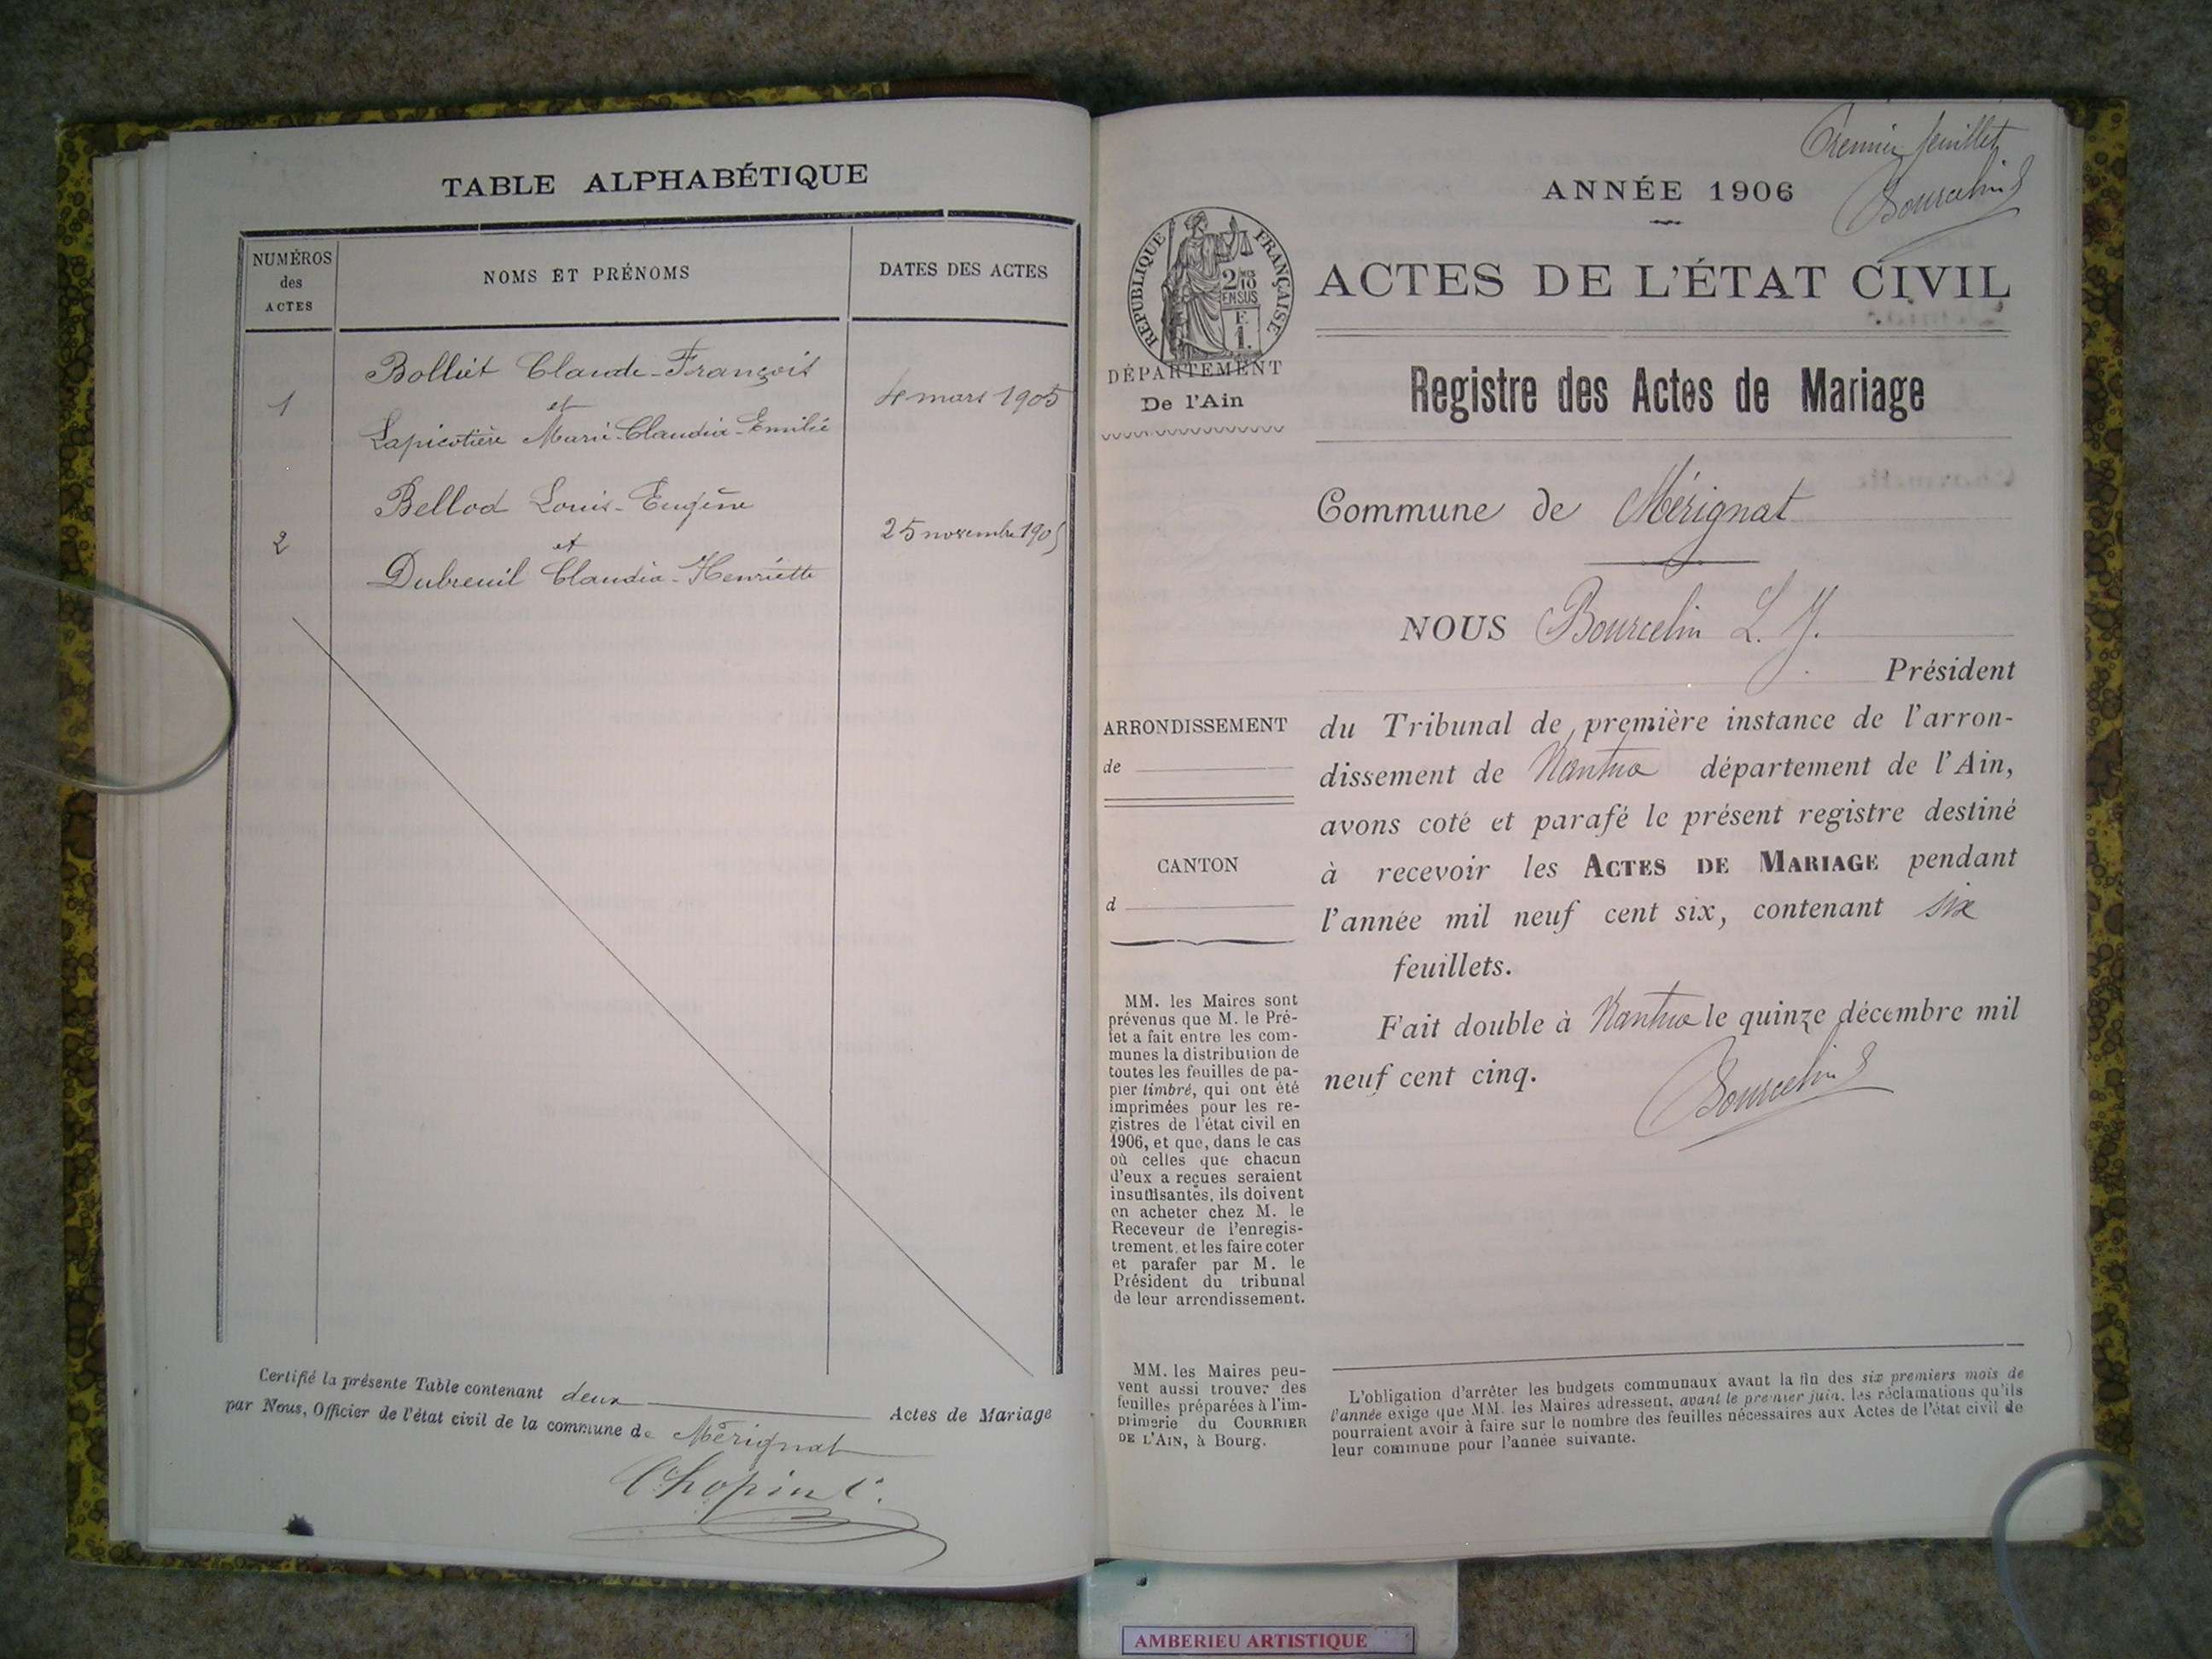 TABLE ALPHABÉTIQUE
NUMÉROS
des
ACTES
NOMS ET PRÉNOMS
DATES DES ACTES
Bolliet Claude-François
1
et
4 mars 1905
Lapicotière Marie-Claudia-Emilie
Bellod Louis-Eugène
2
et
25 novembre 1905
Dubreuil Claudia-Henriette
Certifié la présente Table contenant deux Actes de Mariage
par Nous, Officier de l'état civil de la commune de Mérignat
Chopin C.
Premier feuillet
Bourcelin
ANNÉE 1906
RÉPUBLIQUE FRANÇAISE
2/10
EN SUS
F.
1.
ACTES DE L'ÉTAT CIVIL
DÉPARTEMENT
De l'Ain
Registre des Actes de Mariage
Commune de Mérignat
NOUS Bourcelin L. J.
Président
du Tribunal de première instance de l'arron-
dissement de Nantua département de l'Ain,
avons coté et parafé le présent registre destiné
à recevoir les ACTES DE MARIAGE pendant
l'année mil neuf cent six, contenant six
feuillets.
Fait double à Nantua le quinze décembre mil
neuf cent cinq.
Bourcelin
ARRONDISSEMENT
de
CANTON
d
MM. les Maires sont
prévenus que M. le Pré-
fet a fait entre les com-
munes la distribution de
toutes les feuilles de pa-
pier timbré, qui ont été
imprimées pour les re-
gistres de l'état civil en
1906, et que, dans le cas
où celles que chacun
d'eux a reçues seraient
insuffisantes, ils doivent
en acheter chez M. le
Receveur de l'enregis-
trement, et les faire coter
et parafer par M. le
Président du tribunal
de leur arrondissement.
MM. les Maires peu-
vent aussi trouver des
feuilles préparées à l'im-
primerie du COURRIER
DE L'AIN, à Bourg.
L'obligation d'arrêter les budgets communaux avant la fin des six premiers mois de
l'année exige que MM. les Maires adressent, avant le premier juin, les réclamations qu'ils
pourraient avoir à faire sur le nombre des feuilles nécessaires aux Actes de l'état civil de
leur commune pour l'année suivante.
AMBERIEU ARTISTIQUE